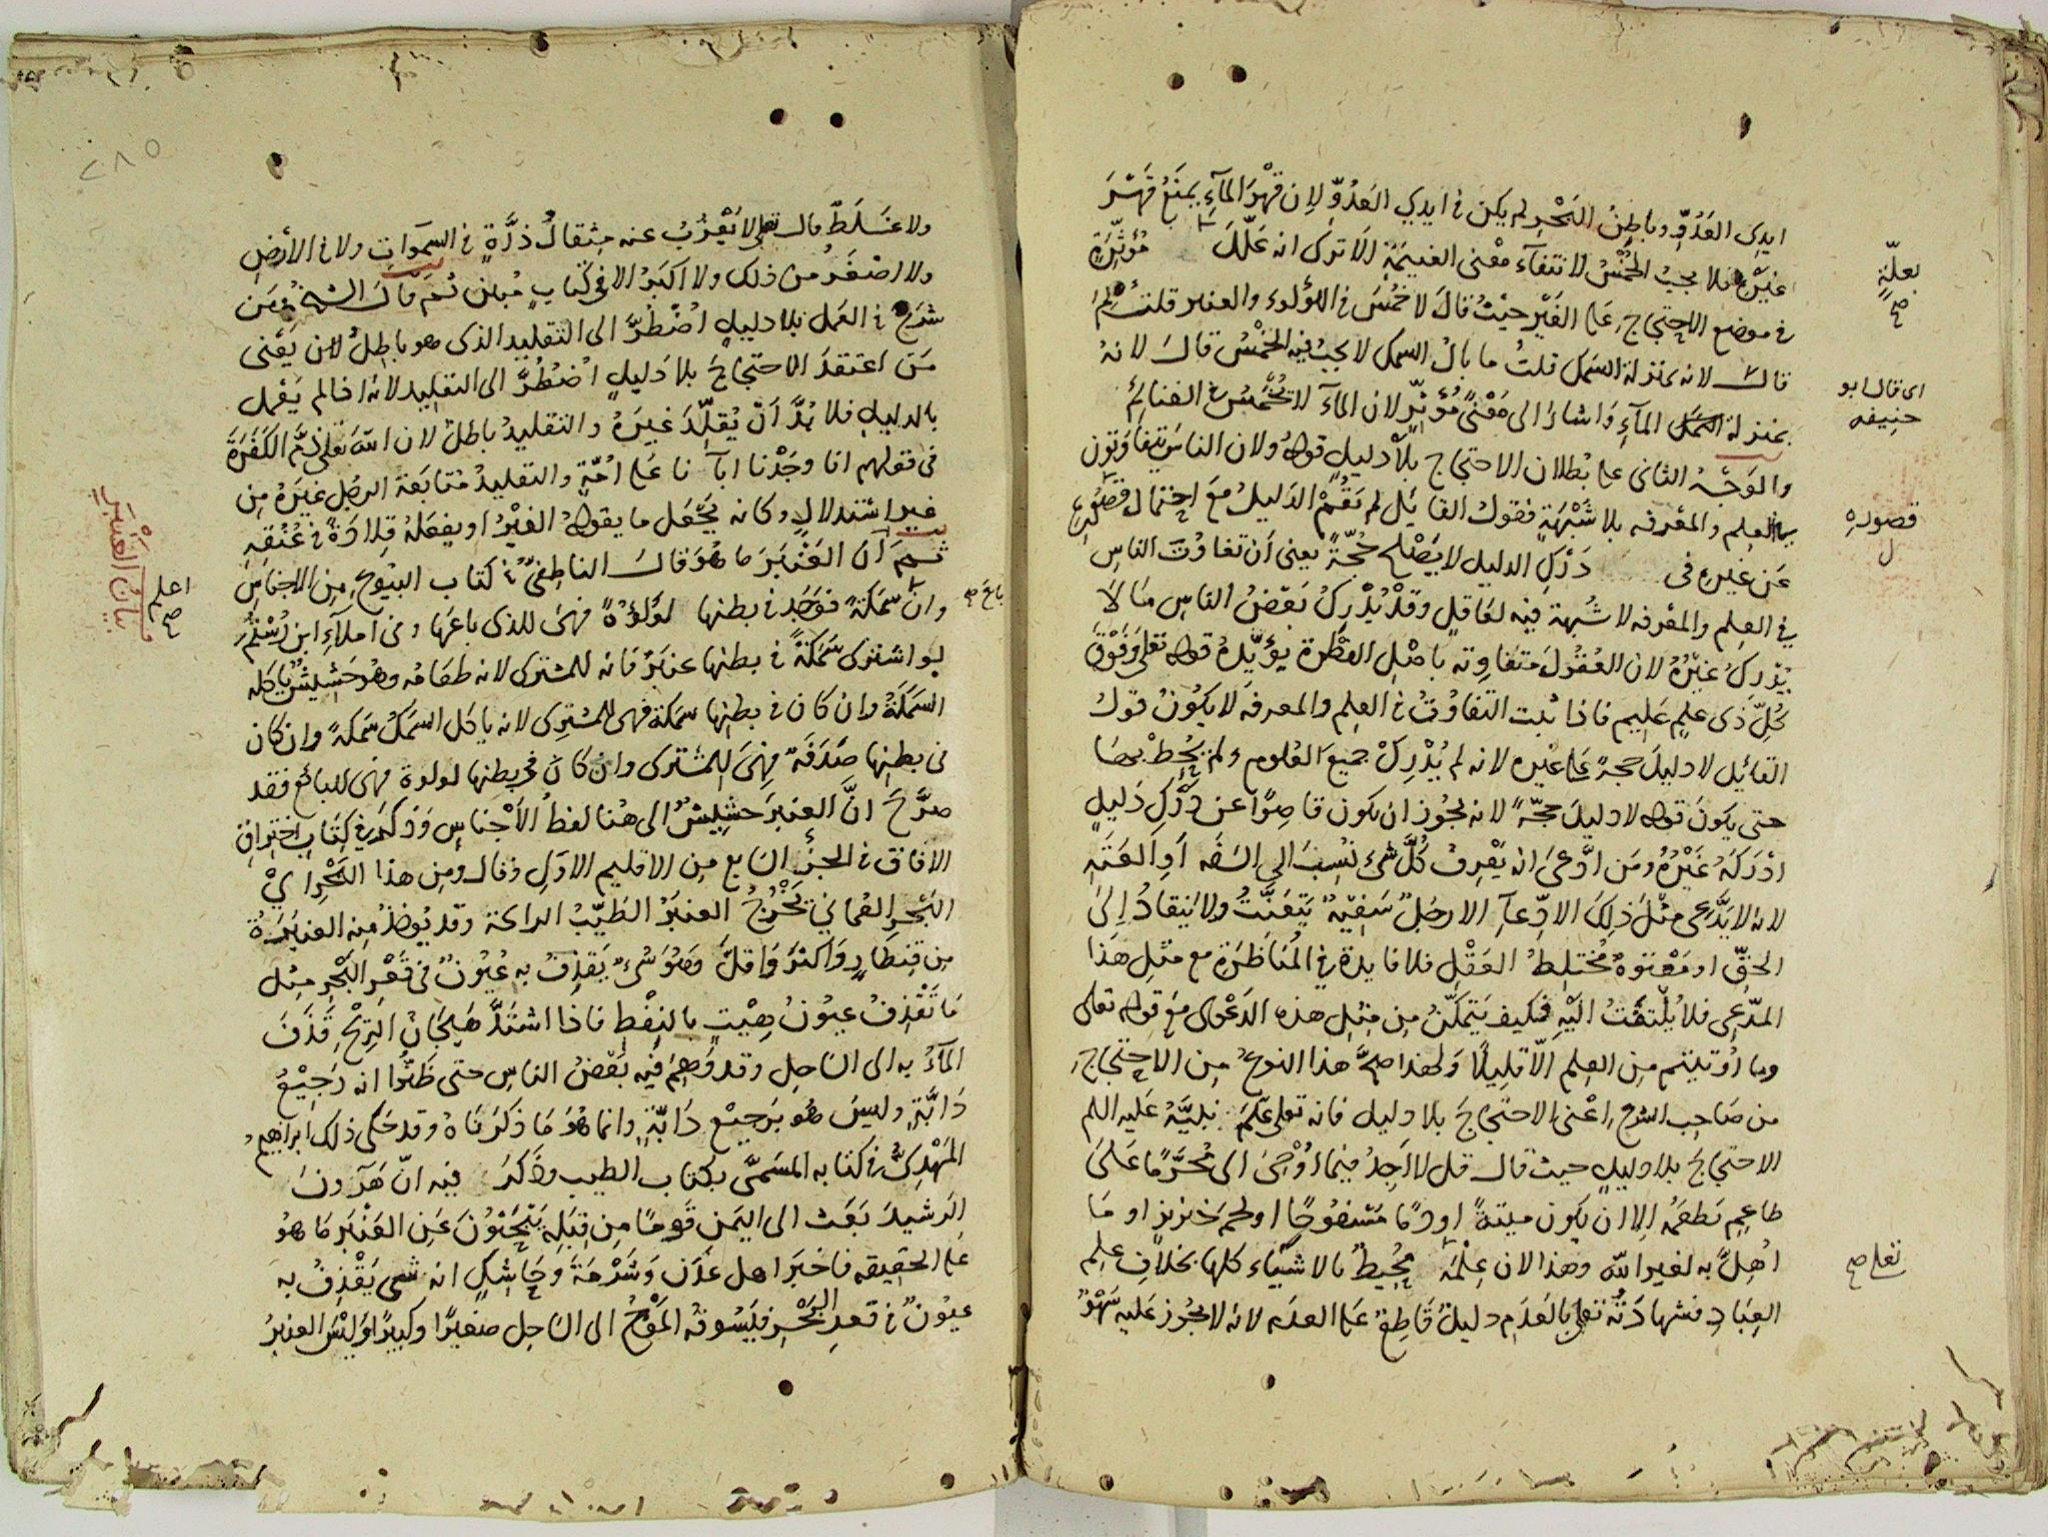 ايدى العَدُوِّ وباطِنُ البَحْرِ لم يكن فى ايدي العَدُوِّ لِان قَهْرَ المآءِ يمنَعُ قَهْرَ
غيْرِهِ فلا يجبُ الخُمُسُ لانتفآء مَعْنى الغنيمَةِ الَا ترى انه عَلَّلَ مُؤثِّرَةٍ
بعلّةٍ صح
فى موضع الاحتجاج على الغَيْر حَيْثُ قالَ لا خُمُسَ فى اللؤلوء والعنبر قلتُ لِمَ
قال لانه بمنزلة السَمَك قلتُ ما بالُ السمك لا يجبُ فيه الخُمْسُ قالَ لانهُ
اى قال ابو حنيفه
بمنزلة المآءِ وَاشارَ الى مَعْنىً مُؤثِّرٍ لان المآءَ لا تُخَمَّسُ فى الغنائِمِ
والوَجْهُ الثانى على بُطلان الاحتجاج بلَا دَليلٍ قولهُ ولان الناسَ يتفاوَتون
فى العِلم والمعْرفه بلا شُبْهَةٍ فقولُ القايَل لم يَقُمْ الدَليلُ مَعَ احتمال قصُورِهِ
قصورِهِ ل
عَن غيرِهِ فى دَرْكِ الدليل لا يَصْلح حُجّةً يعنى أن تفاوُتَ الناسِ
فى العِلم والمعْرفه لا شُبْهة فيه لعَاقلٍ وقدْ يُدْرِكُ بَعْضُ الناسِ مَا لَا
يُدْرِكُ غيْرُهُ لان العُقُولَ متفاوته باصْلِ الفِطْرة يؤَيّدُهُ قوله تعلى وَفَوْقَ
كُلِّ ذى علمٍ عَليم فاذا ثبت التفاوُتُ فى العِلم والمعرفه لا يكُونُ قولُ
القائِل لا دليلَ حجةً على غيْره لانه لم يُدْرِكْ جميعَ العُلوم ولم يُحِطْ بهَا
حتى يكونَ قوله لا دليلَ حجّةً لانه يجُوز ان يكون قاصِرًا عن دَرْكِ دَليلٍ
ادْرَكَهُ غَيْرُهُ ومَن ادَّعىَ انه يَعْرِفُ كُلَّ شىءٍ نُسِبَ الى السَفَه أوِ العَتَهِ
لانه لا يَدَّعى مثْلَ ذلِكَ الادِّعآءِ الا رجُلٌ سَفِيْهٌ يَتَعَنَّتُ ولا يَنقادُ اِلىَ
الحقّ او مَعْتوهٌ مُختلِطُ العَقْلِ فلا فايدة فى المُنَاظَرَةِ مع مثْلِ هَذا
المدّعِى فلا يُلْتفَتُ الَيْهِ فكيف يَتَمَكَّنُ مِن مِثْلِ هذه الدَعْوى مَعَ قوله تعلى
وما اُوتيتم مِن العِلم الّا قلِيلًا وَلهٰذا صحَّ هذا النوعُ مِن الاحتِجاجِ
من صَاحِب الشرعِ اعْنى الاحتجَاجَ بلا دليل فانه تعلى عَلّمَ نبيَّهُ عَليه السلم
الاحتجاجَ بلا دليلٍ حيث قال قل لا اَجِدُ فيما اُوْحِىَ الىّ مُحَرَّمًا عَلىَ
طاعِمٍ يَطعَمُه إلا ان يكون ميتةً او دًما مَسْفوُحًا او لحمَ خنزيزٍ او مَا
اُهِلَّ به لغير الله وهذا لان عِلْمَهُ مُحِيطٌ بالاشيَاء كلها بخلَافِ علم
تعلى صح
العِبَادِ فشهادَتُهُ تعلى بالعَدَمِ دليلٌ قَاطِعٌ على العدَم لانه لا يجُوز عَليه سَهْوٌ
٢٨٥
ولا غَلَطٌ قال تعلى لا يَعْزُبُ عنه مِثقالُ ذرَّةٍ فى السموَاتِ ولا فى الأَرضِ
ولا اصْغَرُ من ذلك ولا اكبَرُ الا فى كتابٍ مُبين ثم قالَ الشيخ ومَن
شَرَعَ فى العَمل بلا دليلٍ اُضْطُرَّ الى التقليد الذى هو باطِلٌ لان يَعْنى
مَن اعتقدَ الاحتجاجَ بلا دَليلٍ اُضْطُرَّ الى التقليد لانه اذا لم يَعْمل
بالدليلِ فلا بُدَّ اَنْ يُقلِّدَ غيَرهُ والتقليدُ باطلٌ لان الله تعلى ذمَّ الكَفَرَةَ
فى قولهم انا وجَدْنا ابآ نا عَلى امّةٍ والتقليدُ مُتابَعَة الرجُل غيَرهُ مِن
غير اسْتدلالٍ وكانه يَجْعَل ما يقولهُ الغيْرُ او يفعَلهُ قِلادَةً فى عُنُقِهِ
ثم اَن العَنْبَرَ ما هُوَ قالَ الناطِفىُّ فى كتاب البيُوعِ مِن الاجناسِ
اعلم صح
بيَانُ العَنْبَرِ
وانْ سَمَكَةً فوَجَدَ فى بطنها لُؤلُؤةً فهىَ للذى باعَها وفى اَملآءِ ابن رُسْتُم
باع صح
لو اشترى سَمَكَةً فى بطنها عنبرٌ فانه للمشترى لانه طَعَامُه وهُوَ حَشِيشٌ ياكله
السَمَكَةُ وان كان فى بطنها سمكة فهى للمشترِى لانه ياكل السمكُ سَمَكةً وان كان
فى بطنِها صَدَفَةٌ فهىَ للمشترى وان كان فى بطنها لولوة فهى للبائع فقد
صرَّحَ انَّ العنبرَ حشيشٌ الى هُنا لفظُ الاَجْناسِ وَذكَرَ فى كِتَابِ اختراق
الافاق فى الجزُء السَابع مِن الاقليم الاوَلِ وقال ومِن هذا البَحْرِ اىْ
البَحْر العُماني تَخْرُجُ العنبرُ الطَيّبُ الرائحة وقد يُوخذُ مِنه العنبرَةُ
مِن قِنطَارٍ وَاَكثرَ وَاَقلَّ وَهُوَ شىْءٌ يَقذِفُ به عُيُونٌ فى قَعْرِ البَحْرِ مِثل
مَا تَقْذِفُ عيوُنُ هِيْتٍ بالنِفْطِ فاذَا اشتَدَّ هَيَجَانُ الرِيْحِ قَذَفَ
المآءُ به الى السَاحِل وقد وَهِمَ فيه بَعْضُ الناسِ حتى ظَنُّوا انه رَجِيْعُ
دَابَّةٍ وليسَ هُو بِرَجيْع دَابّةٍ وانما هُوَ مَا ذكرْنَاهُ وقد حَكى ذلك ابراهيمُ
المَهْدِىُّ فى كتابه المسَمىَّ بكتاب الطيب وذكرَ فيه انّ هَرُونَ
الرشيدَ بَعَثَ الى اليَمن قَومًا مِن قِبَلِهِ يَبْحَثوُنَ عَنِ العَنْبَر مَا هُو
على الحقيقه فاخبَرَ اهل عَدَن وَشَرْمَةَ وحَاسِكٍ انه شىٌ يَقْذِفُ به
عيوُنٌ فى قعر البَحْرِ فيَسُوقه المَوْجُ الى السَاحِل صغيرًا وكبيرًا وَليْسَ العنبرُ